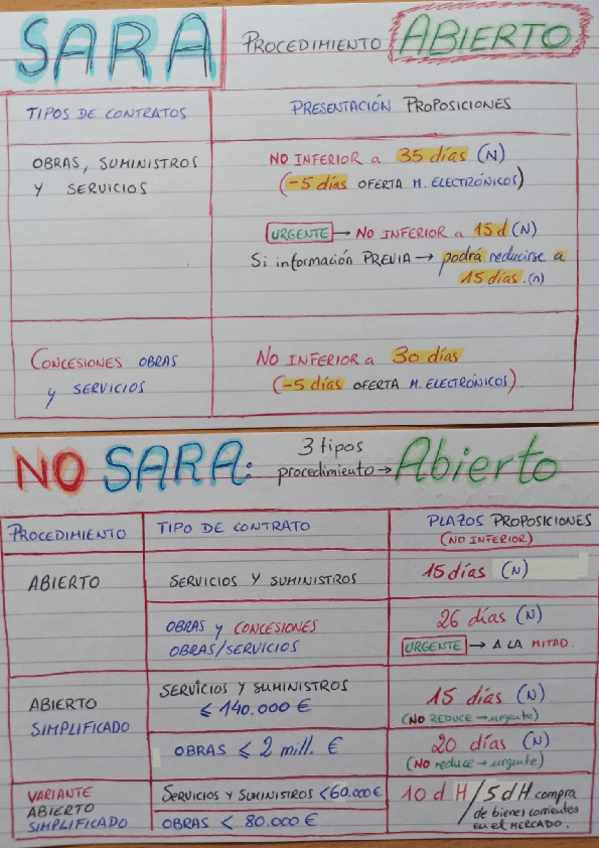 SARA PROCEDIMIENTO ABIERTO
TIPOS DE CONTRATOS
PRESENTACIÓN PROPOSICIONES
OBRAS, SUMINISTROS
Y SERVICIOS
NO INFERIOR a 35 días (N)
(-5 días OFERTA M. ELECTRÓNICOS)
URGENTE → NO INFERIOR a 15 d (N)
Si información PREVIA → podrá reducirse a
15 días. (n)
CONCESIONES OBRAS
y SERVICIOS
NO INFERIOR a 30 días
(-5 días OFERTA M. ELECTRÓNICOS).
NO SARA: 3 tipos
procedimiento → Abierto
PROCEDIMIENTO
TIPO DE CONTRATO
PLAZOS PROPOSICIONES
(NO INFERIOR)
ABIERTO
SERVICIOS Y SUMINISTROS
15 días (N)
OBRAS y CONCESIONES
OBRAS/SERVICIOS
26 días (N)
URGENTE → A LA MITAD.
ABIERTO
SIMPLIFICADO
SERVICIOS Y SUMINISTROS
≤ 140.000 €
15 días (N)
(NO REDUCE → urgente)
OBRAS ≤ 2 mill. €
20 días (N)
(NO reduce → urgente)
VARIANTE
ABIERTO
SIMPLIFICADO
SERVICIOS Y SUMINISTROS < 60.000 €
OBRAS < 80.000 €
10 d H / 5 d H compra
de bienes corrientes
en el MERCADO.